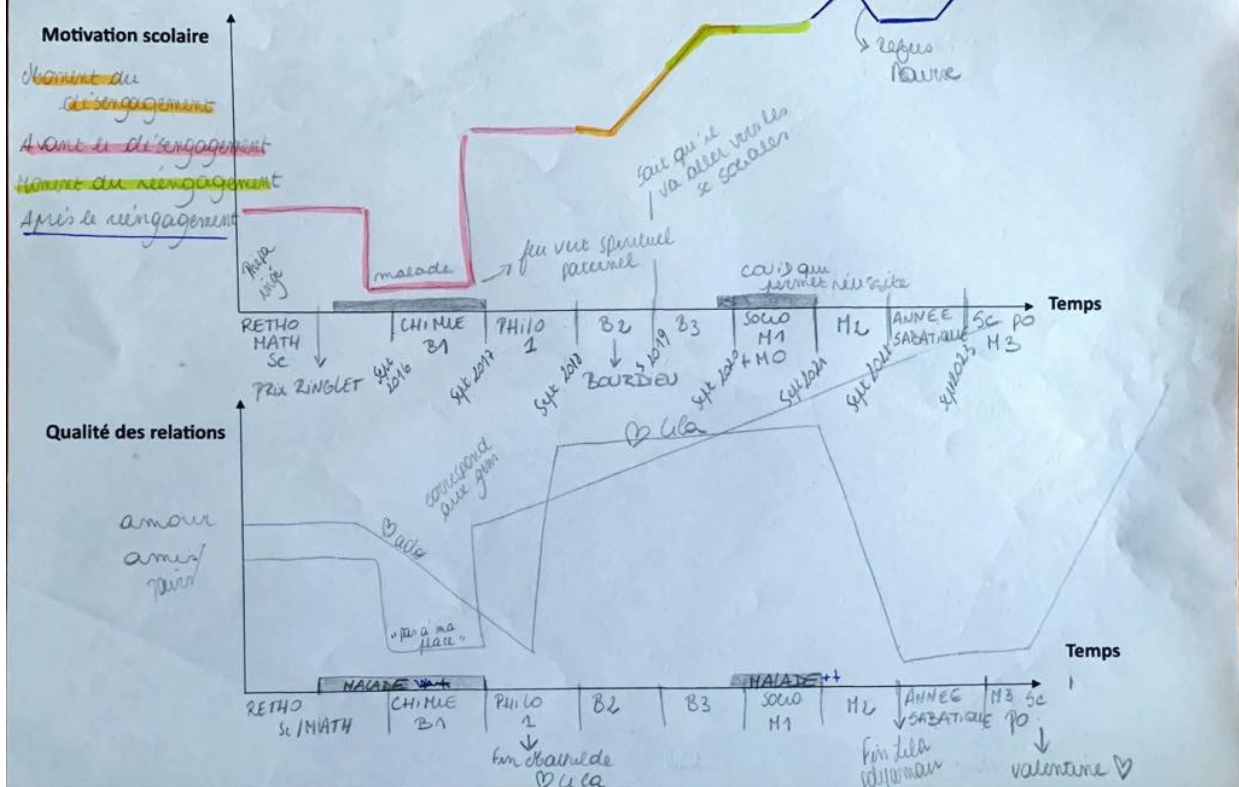 Motivation scolaire
Moment du
désengagement
Avant le désengagement
Moment du réengagement
Après le réengagement
refus
Bourse
sait qu'il
va aller vers les
sc sociales
Prépa
ingé
malade
feu vert spirituel
paternel
covid qui
permet réussite
Temps
RETHO
MATH
SC
CHIMIE
B1
PHILO
1
B2
B3
SOCIO
M1
+ MO
M2
ANNEE
SABATIQUE
SC PO
M3
PRIX RINGLET
Sept 2016
Sept 2017
Sept 2018
BOURDIEU
S 2019
Sept 2020
Sept 2021
Qualité des relations
correspond
aux gens
♡ Lila
amour
amis/
pairs
♡ado
"pas à ma
place"
Temps
MALADE
MALADE ++
RETHO
Sc/MATH
CHIMIE
B1
PHILO
1
B2
B3
SOCIO
M1
M2
ANNEE
SABATIQUE
M3 Sc
PO
Fin Mathilde
♡ Lila
Fin Lila
valentine ♡